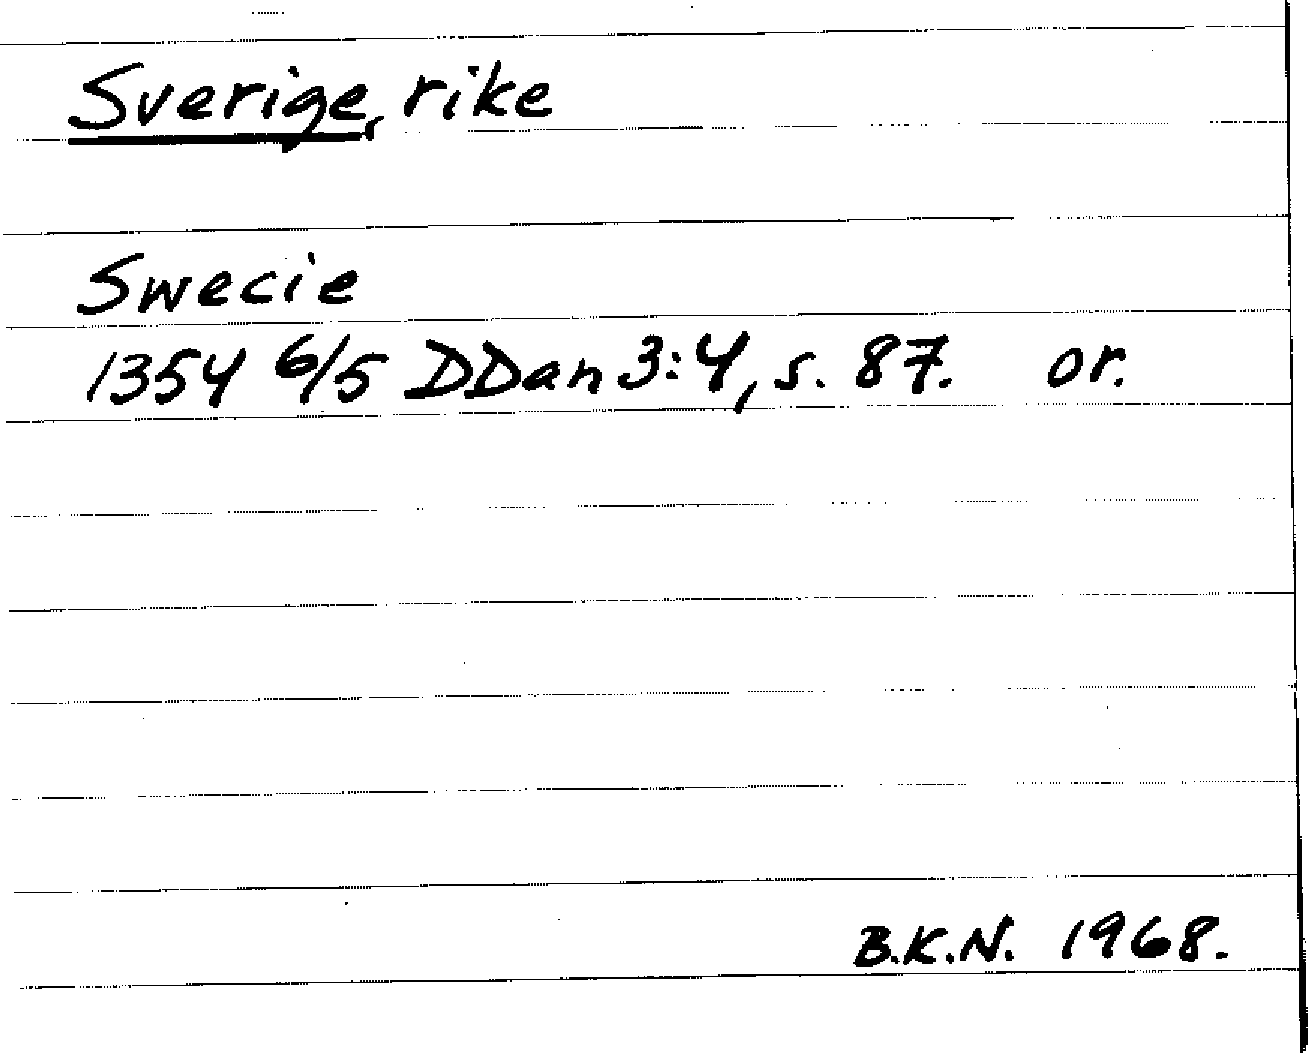 Sverige, rike
Swecie
1354 6/5 DDan 3:4, s. 87. or.
B.K.N. 1968.